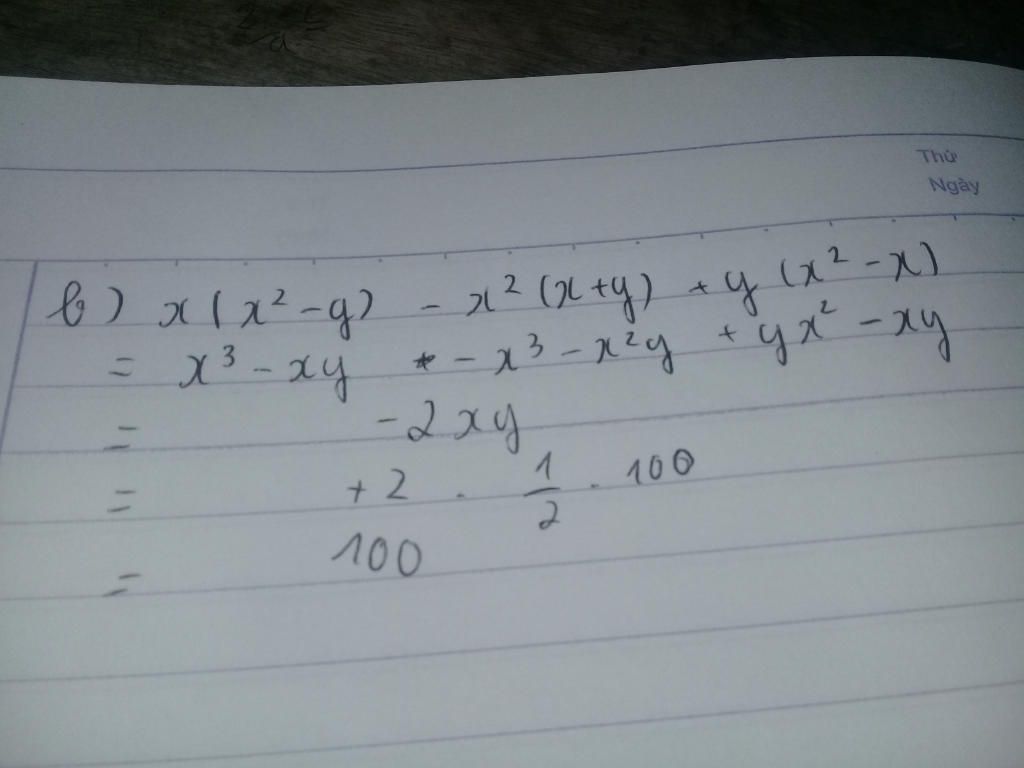 Thứ
Ngày
b) x(x² - y) - x²(x+y) + y(x² - x)
= x³ - xy - x³ - x²y + yx² - xy
= -2xy
= +2 . 1/2 . 100
= 100